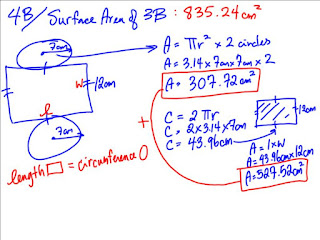 4B/Surface Area of 3B : 835.24cm²
7cm
W=12cm
l
7cm
length = circumference
A = πr² x 2 circles
A = 3.14 x 7cm x 7cm x 2
A = 307.72cm²
+
C = 2πr
C = 2x3.14x7cm
C = 43.96cm
12cm
A = l x w
A = 43.96cm x 12cm
A = 527.52cm²